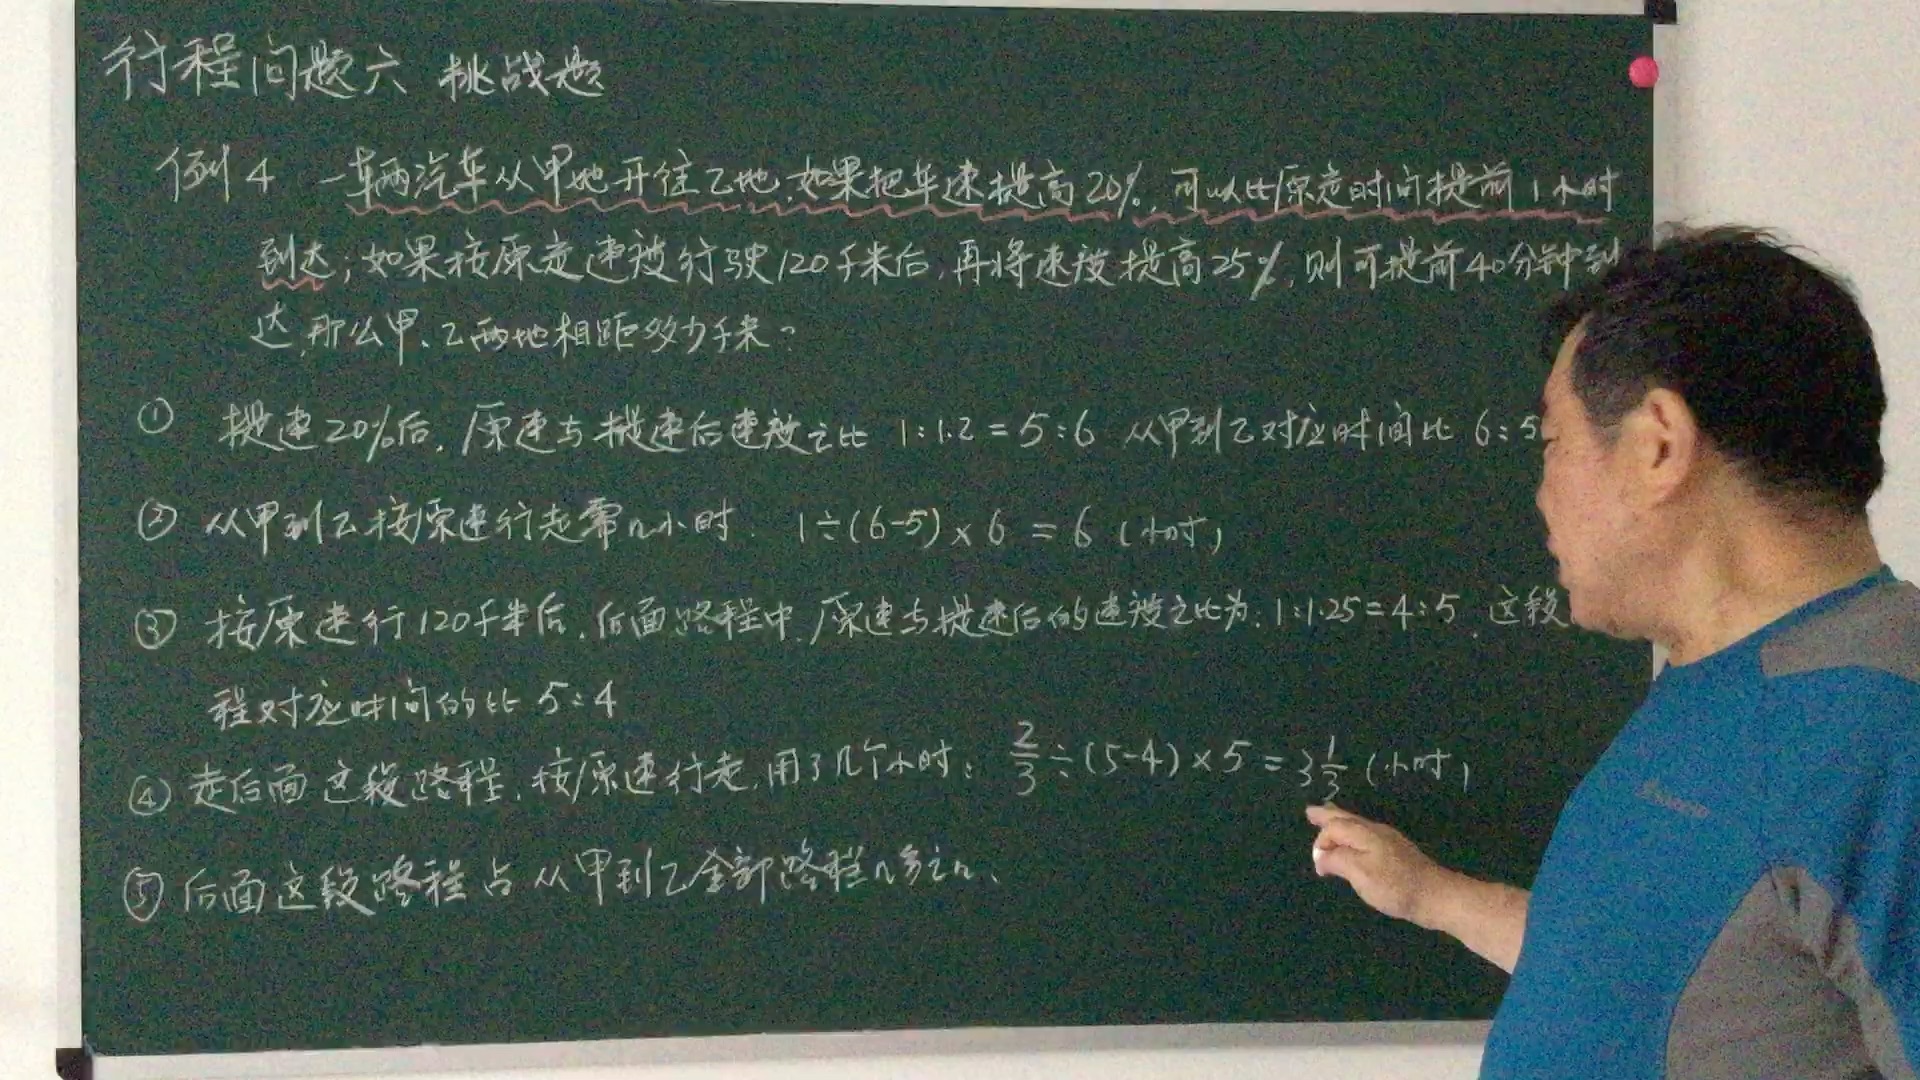 行程问题六 挑战题
例4 一辆汽车从甲地开往乙地,如果把车速提高20%,可以比原定时间提前1小时
到达;如果按原定速度行驶120千米后,再将速度提高25%,则可提前40分钟到
达,那么甲、乙两地相距多少千米?
① 提速20%后,原速与提速后速度之比 1:1.2=5:6 从甲到乙对应时间比 6:5
② 从甲到乙按原速行走需几小时. 1÷(6-5)×6=6(小时)
③ 按原速行120千米后,后面路程中,原速与提速后的速度之比为:1:1.25=4:5,这段
程对应时间的比 5:4
④ 走后面这段路程,按原速行走,用了几个小时: 2/3÷(5-4)×5=3 1/3(小时)
⑤ 后面这段路程占从甲到乙全部路程几分之几、